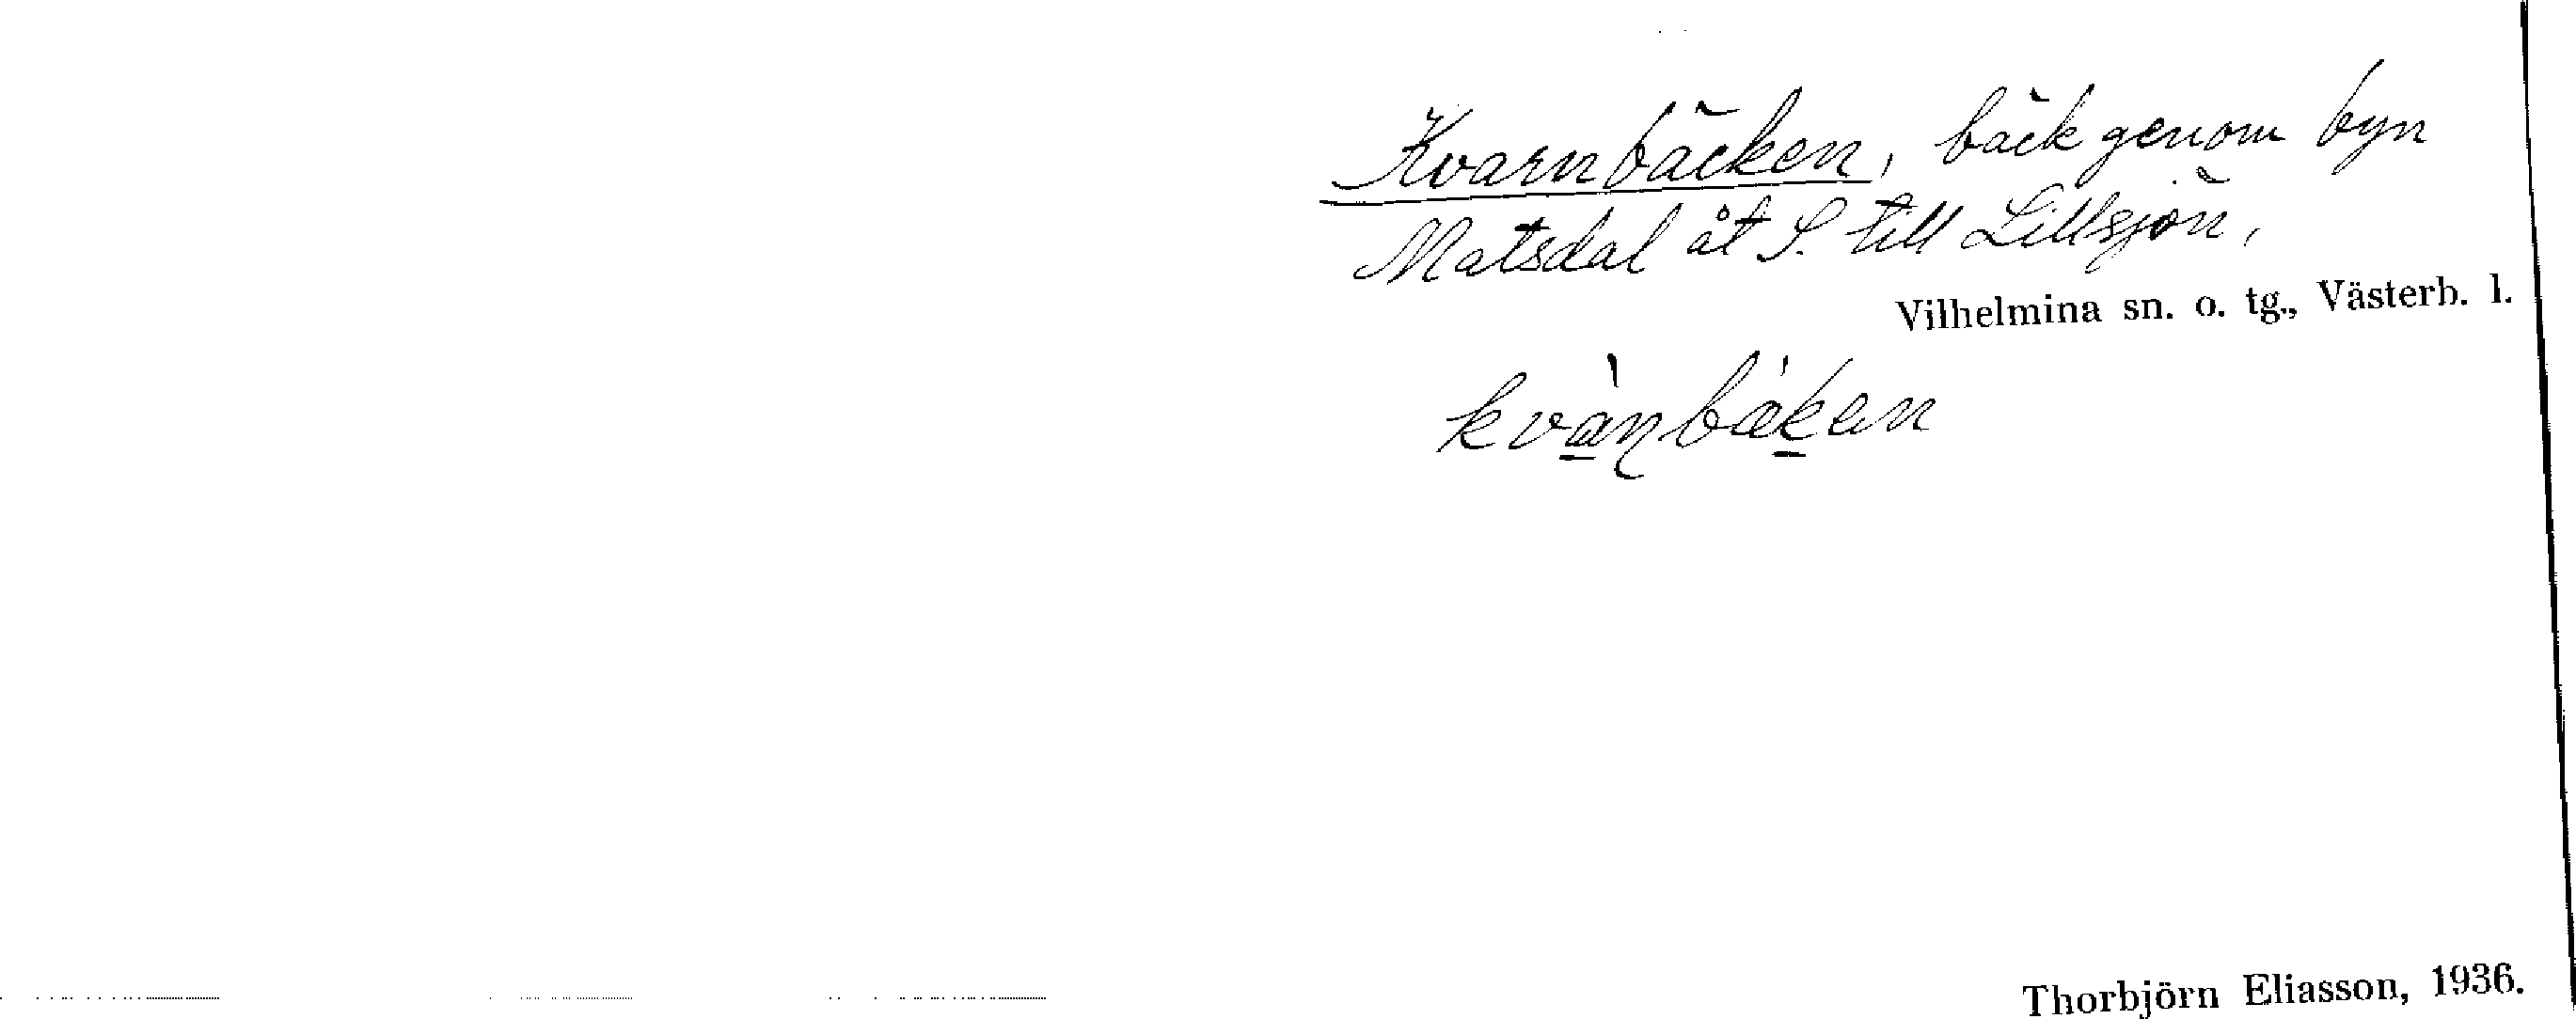 Kvarnbäcken, bäck genom byn
Matsdal åt S. till Lillsjön,
Vilhelmina sn. o. tg., Västerb. l.
kvà̱ṇbǽḵen
Thorbjörn Eliasson, 1936.